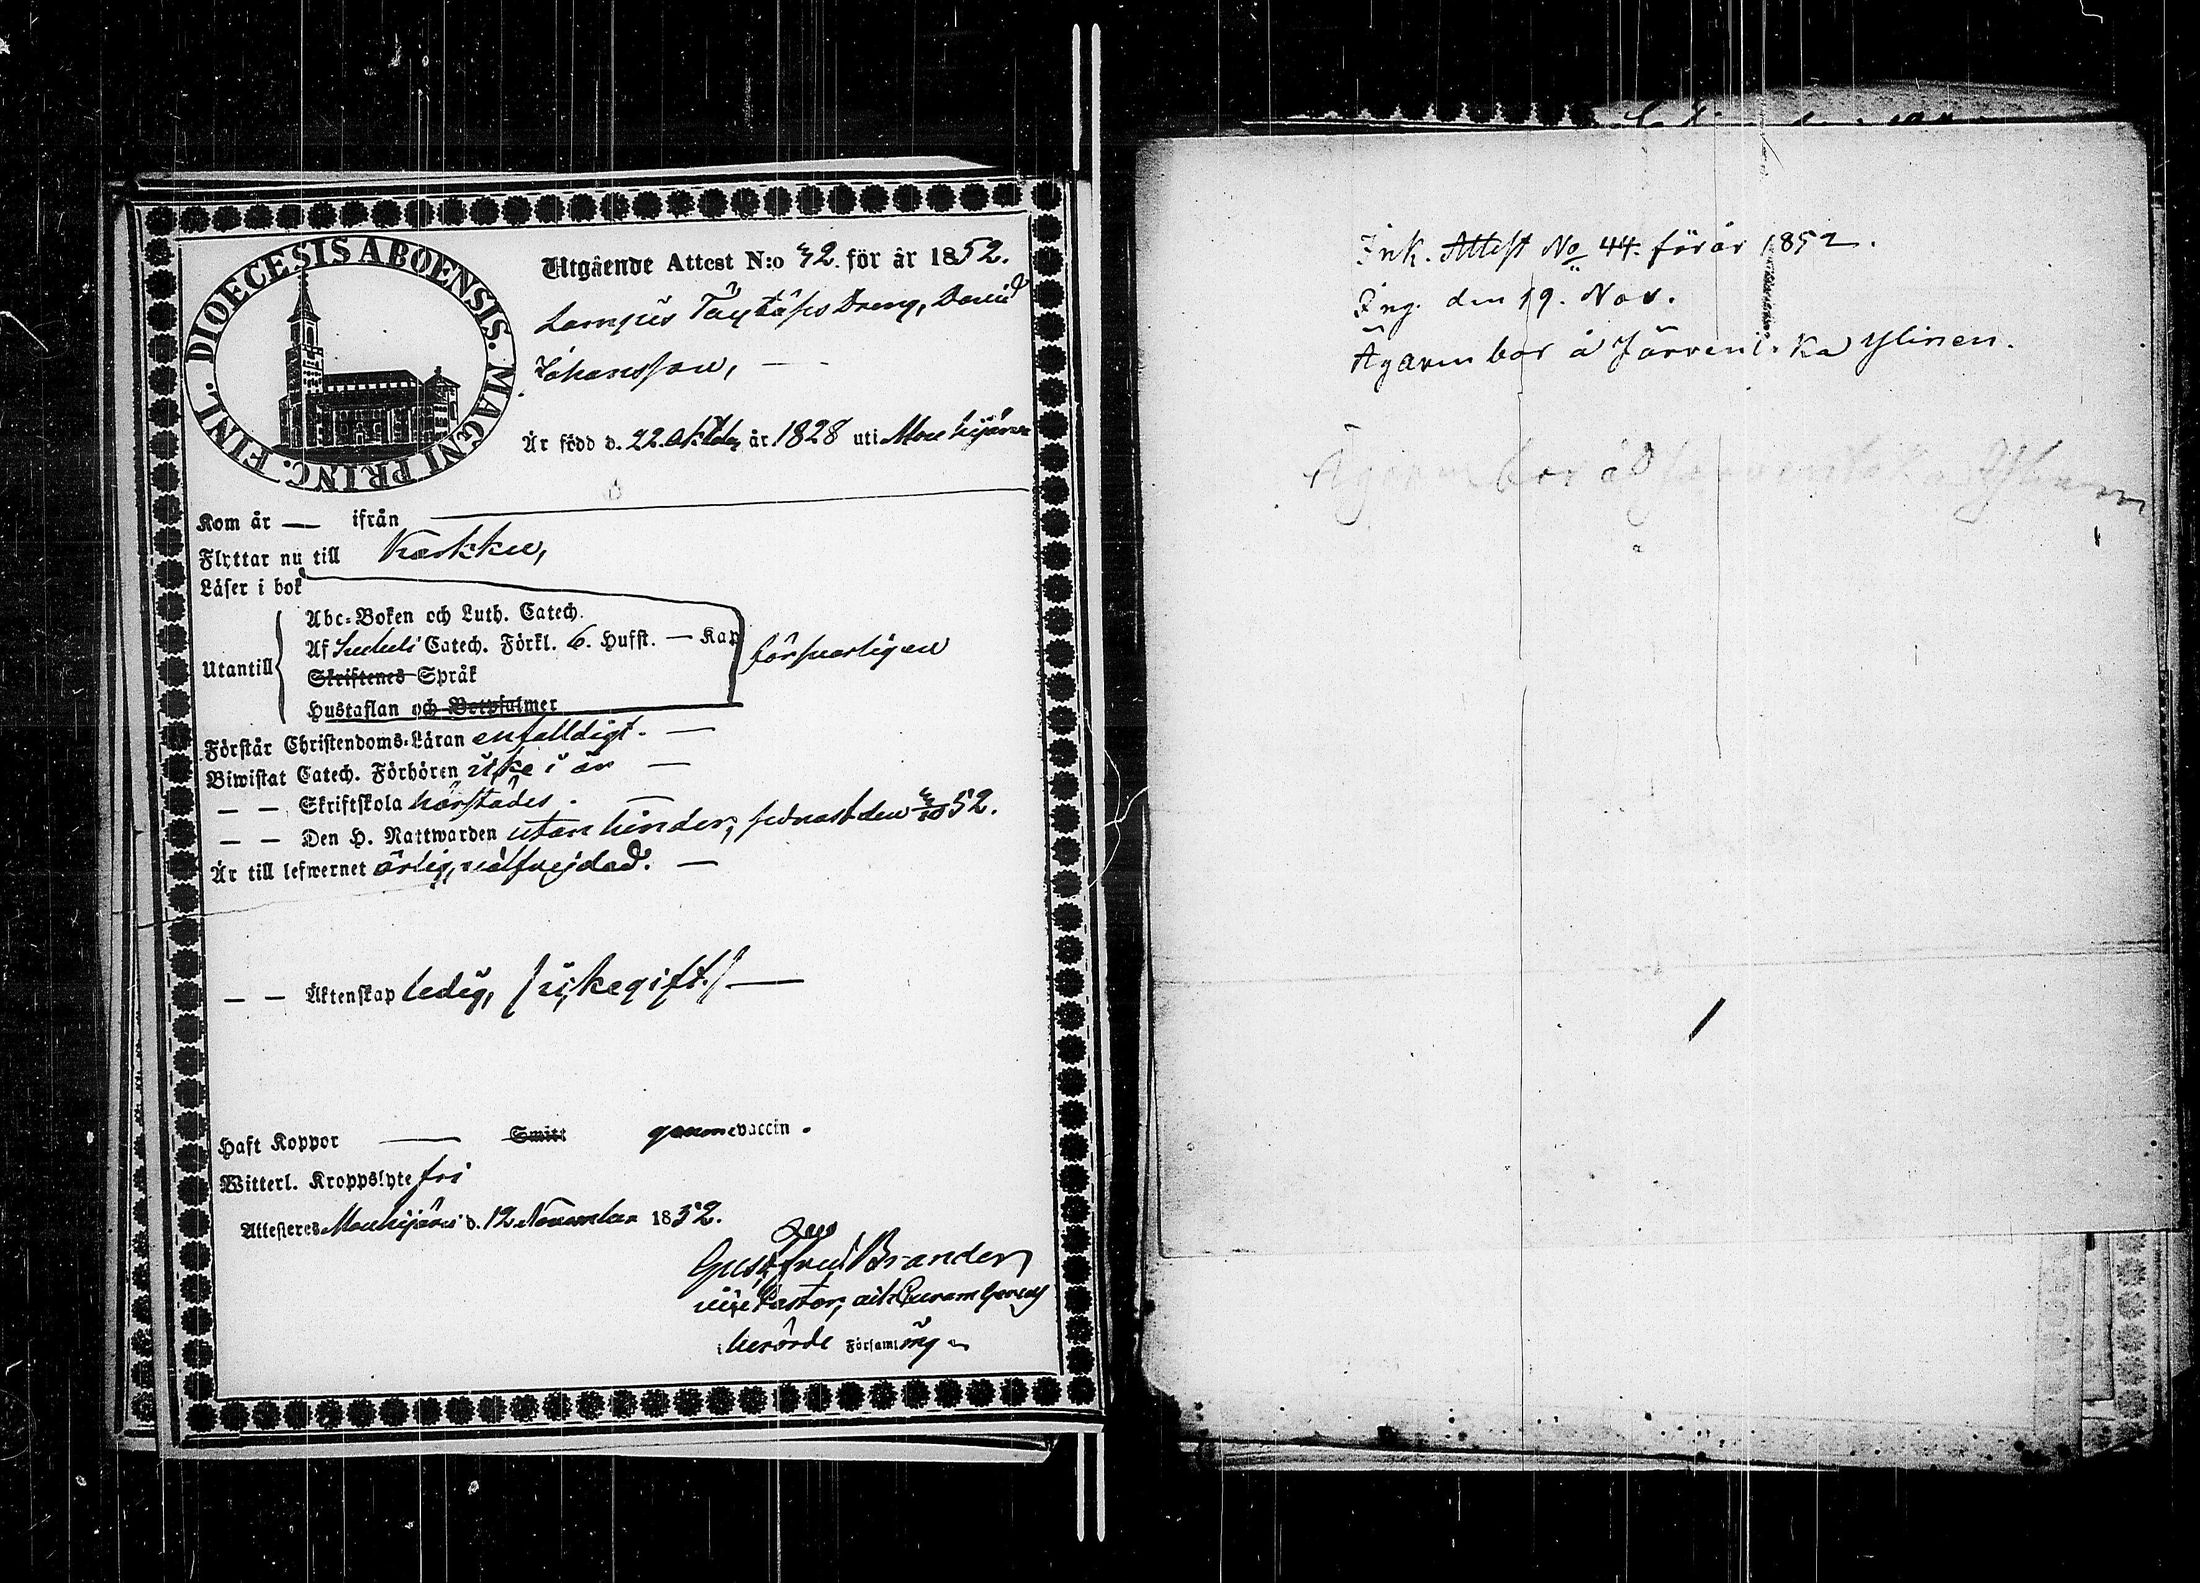 DIOECESIS ABOENSIS. MAGNI PRINC. FINL.
Utgående Attest N:o 42. för år 1852.
Lampis Täykkäs Dreng, David
Johansson, —
Är född d. 22. Oktober år 1828 uti Mouhijärvi
Kom år — ifrån —
Flyttar nu till Karkku,
Läser i bok
Utantill
Abc-Boken och Luth. Catech.
Af Svebeli Catech. Förkl. 6. Hufst. — Kap
Skriftenes Språk
Hustaflan och Botpsalmer
försvarligen
Förstår Christendoms-Läran enfalldigt. —
Biwistat Catech. Förhören icke i år —
— — Skriftskola härstädes. —
— — Den H. Nattwarden utan hinder, sednast den 3/10 52.
Är till lefwernet ärlig, välfrejdad. —
— — Äktenskap ledig, /: icke gift :/ —
Haft Koppor — Smitt genom vaccin.
Witterl. Kroppslyte fri
Attesteras Mouhijärvi d. 12 November 1852.
Gust Fred Brander
vice Pastor, ad Curam Gerens
i berörde Församling
Ink. Attest No 44. för år 1852.
Ing. den 19. Nov.
Ägaren bor å Järvenikka Ylinen.
Ägaren bor å Ylinen